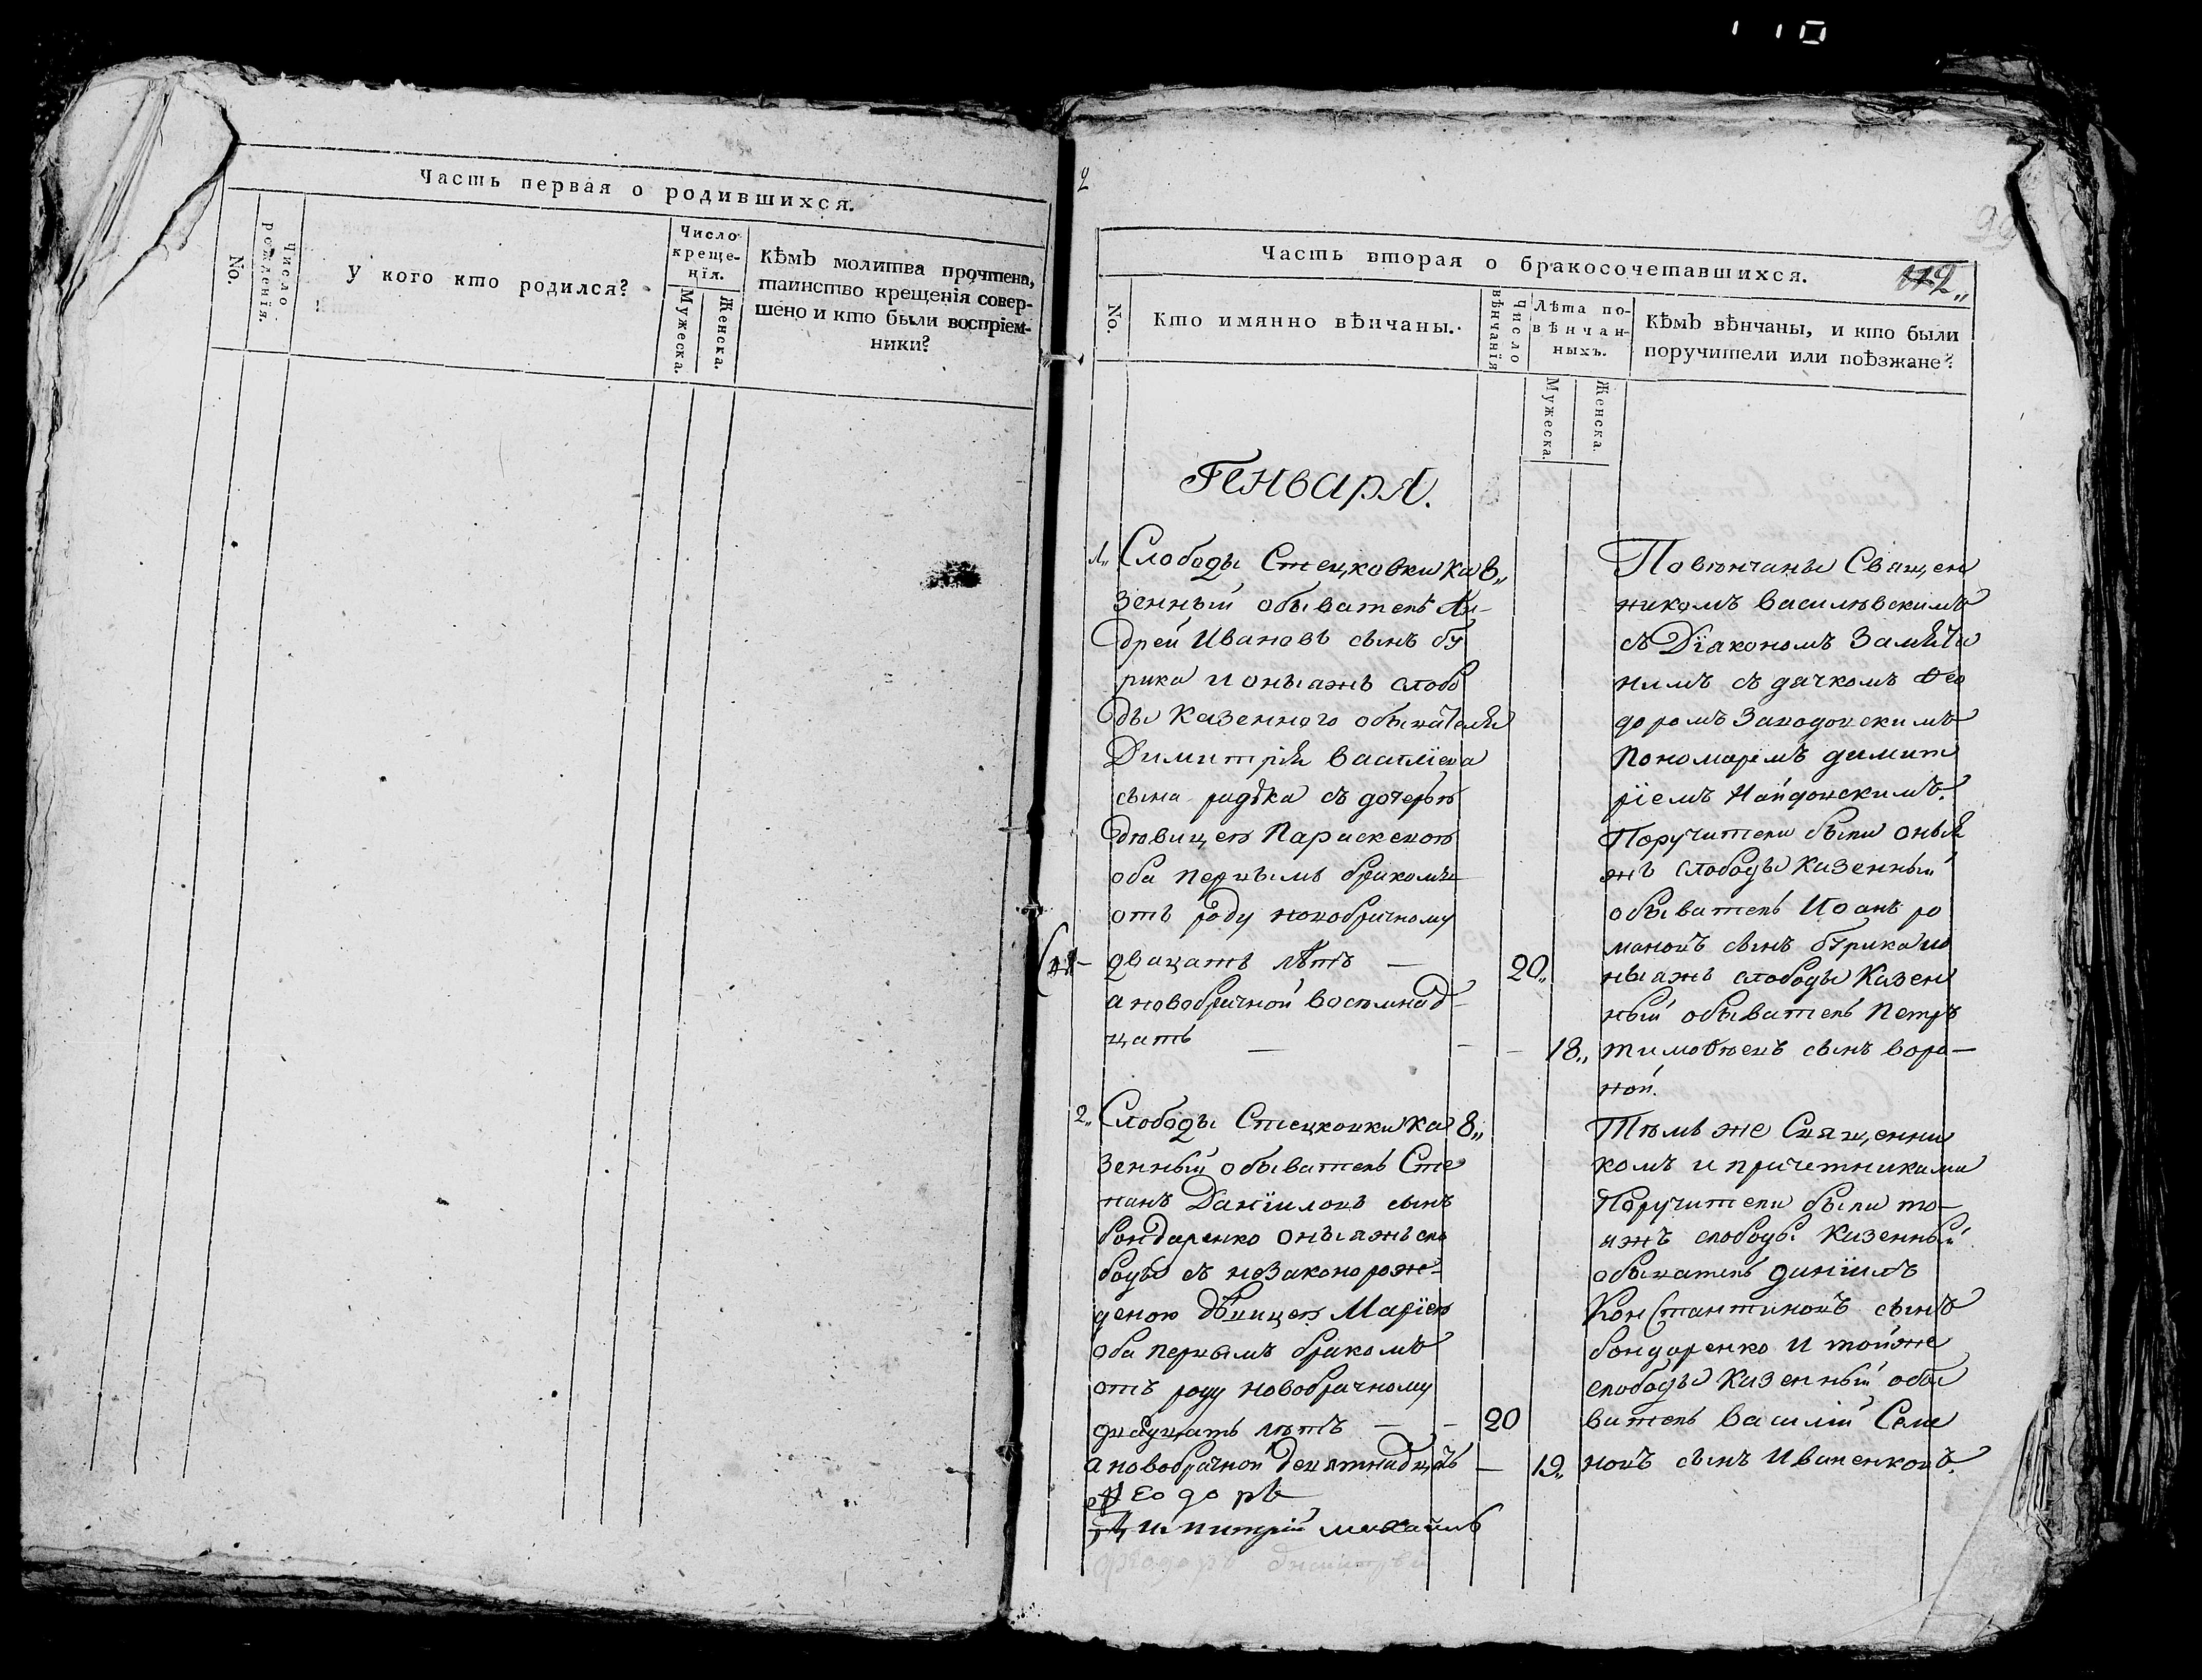 Часть первая о родившихся.
No.
Число рожденія.
У кого кто родился?
Число
креще-
нія.
Мужеска.
Женска.
Кѣмъ молитва прочтена,
таинство крещенія совер-
шено и кто были воспріем-
ники?
Часть вторая о бракосочетавшихся.
112
No.
Кто имянно вѣнчаны.
Число вѣнчанія
Лѣта по-
вѣнчан-
ныхъ.
Мужеска.
Женска.
Кѣмъ вѣнчаны, и кто были
поручители или поѣзжане?
Генваря.
1. Слободы Стецковки ка 8„
зенный обыватель Ан-
дрей Ивановъ сынъ бу
рика и оныяжъ слобо
ды казенного обывателя
Димитрія Василіева
сына радька съ дочерью
дѣвицею Параскевою
оба первымъ бракомъ
отъ роду новобрачному
двацать лѣтъ — 20„
а новобрачной восемнад-
цать — 18„
Повѣнчаны Священ
никомъ Василѣвскимъ
съ Діакономъ
съ дячкомъ Фео
доромъ
Пономаремъ димит
ріемъ
Поручители были оныя
жъ слободы Казенный
обыватель Иоанъ ро
мановъ сынъ бурика ио
ныяжъ слободы Казен
ный обыватель Петръ
тимоѳеевъ сынъ воро-
ной.
2„ Слободы Стецковки ка 8„
зенный обыватель Сте
панъ Даніиловъ сынъ
бондаренко оныяжъ сло
боды съ незаконорож-
деною дѣвицею Маріею
оба первымъ бракомъ
отъ роду новобрачному
двацать лѣтъ — - 20
а новобрачной девятнадцать — 19„
Тѣмъ же Священни
комъ и причетниками
Поручители были то-
яжъ слободы Казенный
обыватель даніилъ
Константиновъ сынъ
бондаренко и тойже
слободы Казенный обы
ватель Василій Семе
новъ сынъ Иваненковъ.
Ѳеодоръ
Димитрій михаилъ